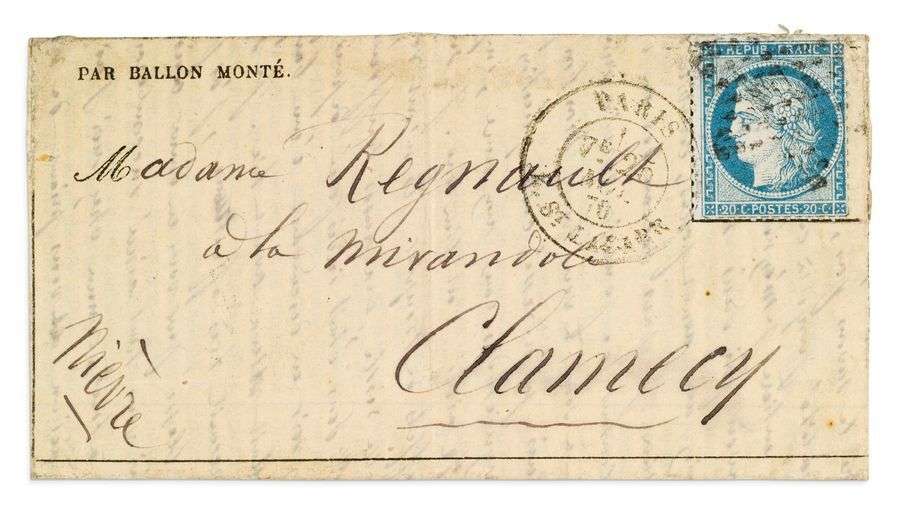 PAR BALLON MONTÉ.
Madame Regnault
à la Mirandole
Clamecy
Nièvre
PARIS
ST LAZARE
70
REPUB. FRANC.
20·C·POSTES·20·C·